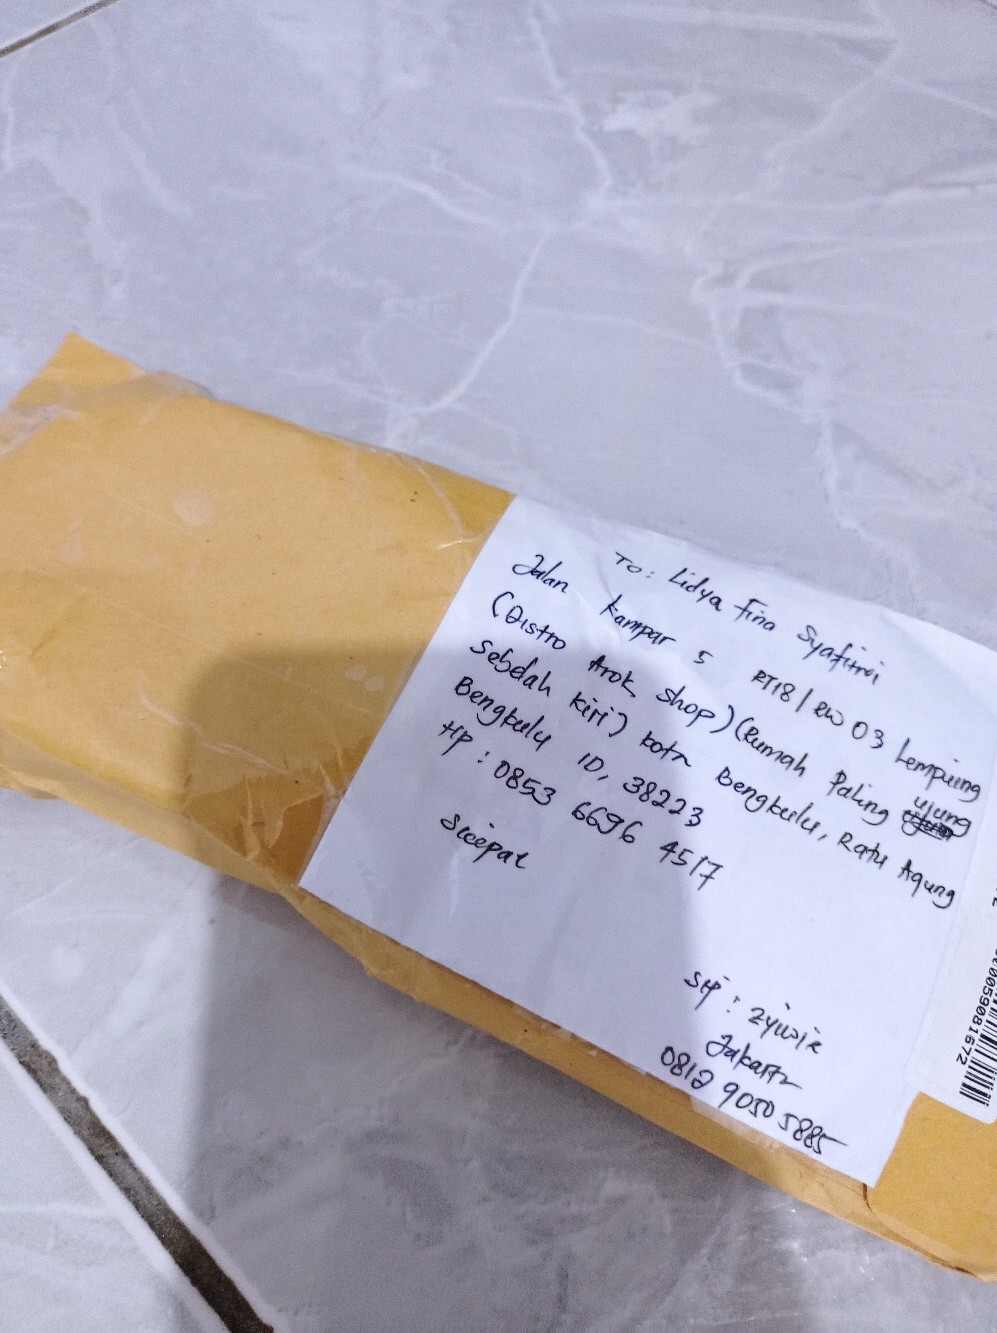 To: Lidya Fino Syafitri
Jalan Kampar 5 RT18/RW 03 Lempuing
(Distro Arok Shop) (Rumah Paling ujung
Sebelah Kiri) Kota Bengkulu, Ratu Agung
Bengkulu ID, 38223
HP : 0853 6696 4517
Sicepat
Jakarta
0812 9050 5885
00059081672